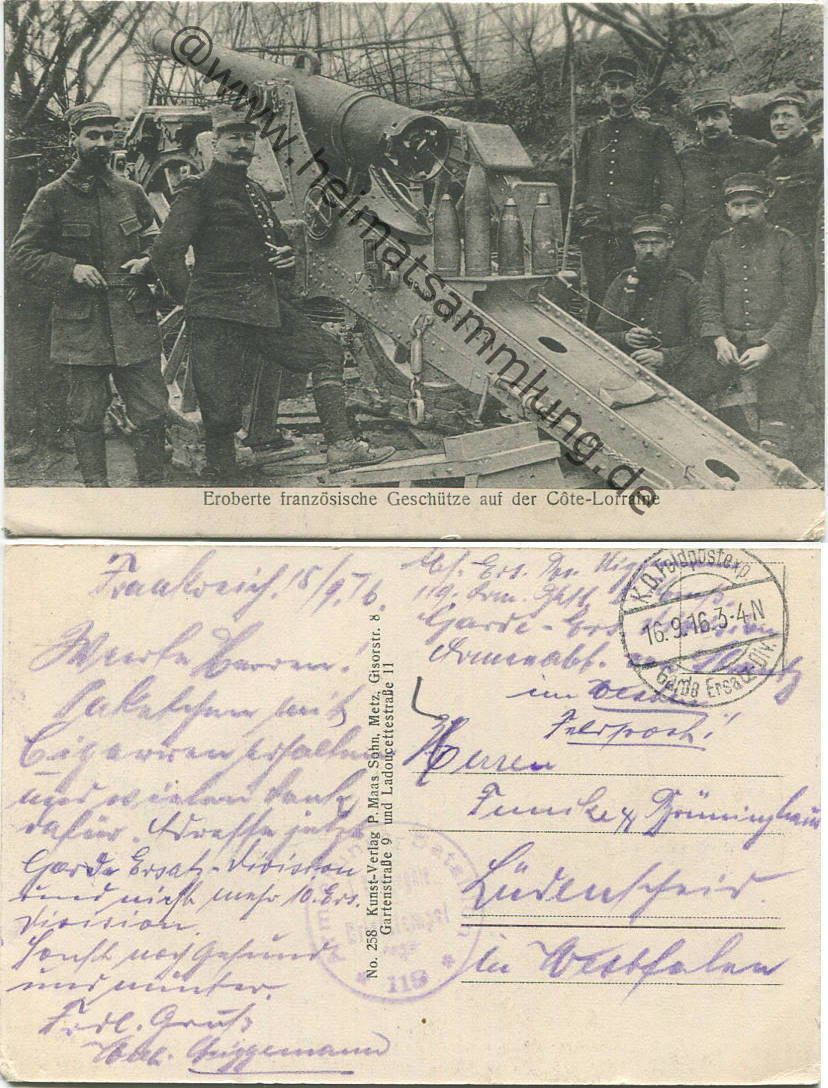 @www.heimatsammlung.de
Eroberte französische Geschütze auf der Côte-Lorraine
Frankreich. 15/9.16.
Werte Herren!
Paketchen mit
Cigarren erhalten
und vielen Dank
dafür. Adresse jetzt
Garde Ersatz-Division
und nicht mehr 10. Ers.
Division.
Sonst noch gesund
und munter.
Frdl. Gruß
No. 258 Kunst-Verlag P. Maas Sohn, Metz, Gisorstr. 8
Gartenstraße 9 und Ladoucettestraße 11
Abs. Ers.
119. Arm.
Garde-Ers. Division
Armierabt.
im Westen
Feldpost!
K.D. Feldpostexp.
16.9.16.3-4N
Garde Ersatz Div.
Herren
Funcke & Brüninghaus
Lüdenscheid.
in Westfalen
Briefstempel
* 119 *